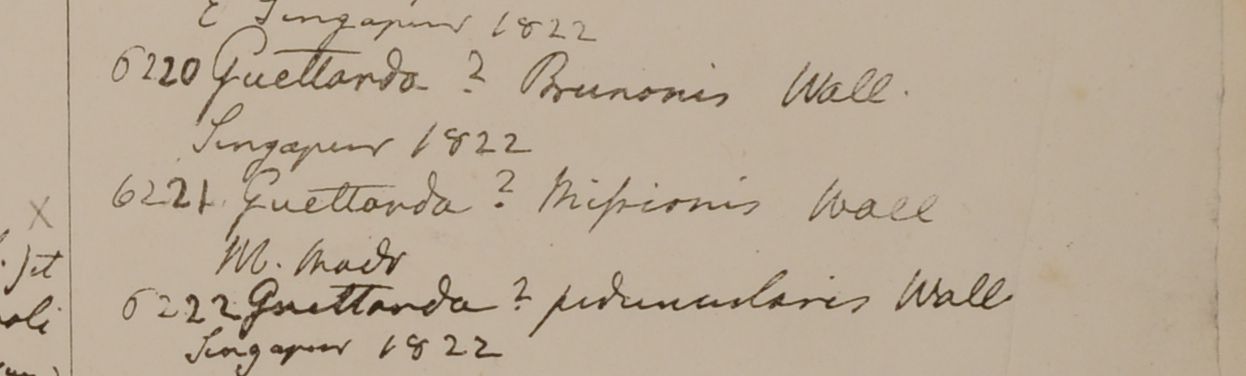 E Singapur 1822
6220 Guettarda ? Brunonis Wall.
Singapur 1822
6221 Guettarda ? Missionis Wall
X
M. Madr
6222 Guettarda ? peduncularis Wall
Singapur 1822